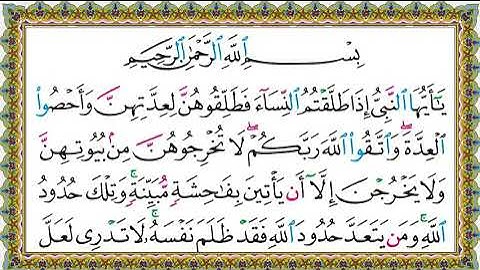 بِسْمِ ٱللَّهِ ٱلرَّحْمَٰنِ ٱلرَّحِيمِ
يَٰٓأَيُّهَا ٱلنَّبِىُّ إِذَا طَلَّقْتُمُ ٱلنِّسَآءَ فَطَلِّقُوهُنَّ لِعِدَّتِهِنَّ وَأَحْصُوا۟
ٱلْعِدَّةَ ۖ وَٱتَّقُوا۟ ٱللَّهَ رَبَّكُمْ ۖ لَا تُخْرِجُوهُنَّ مِنۢ بُيُوتِهِنَّ
وَلَا يَخْرُجْنَ إِلَّآ أَن يَأْتِينَ بِفَٰحِشَةٍ مُّبَيِّنَةٍ ۚ وَتِلْكَ حُدُودُ
ٱللَّهِ ۚ وَمَن يَتَعَدَّ حُدُودَ ٱللَّهِ فَقَدْ ظَلَمَ نَفْسَهُۥ ۚ لَا تَدْرِى لَعَلَّ